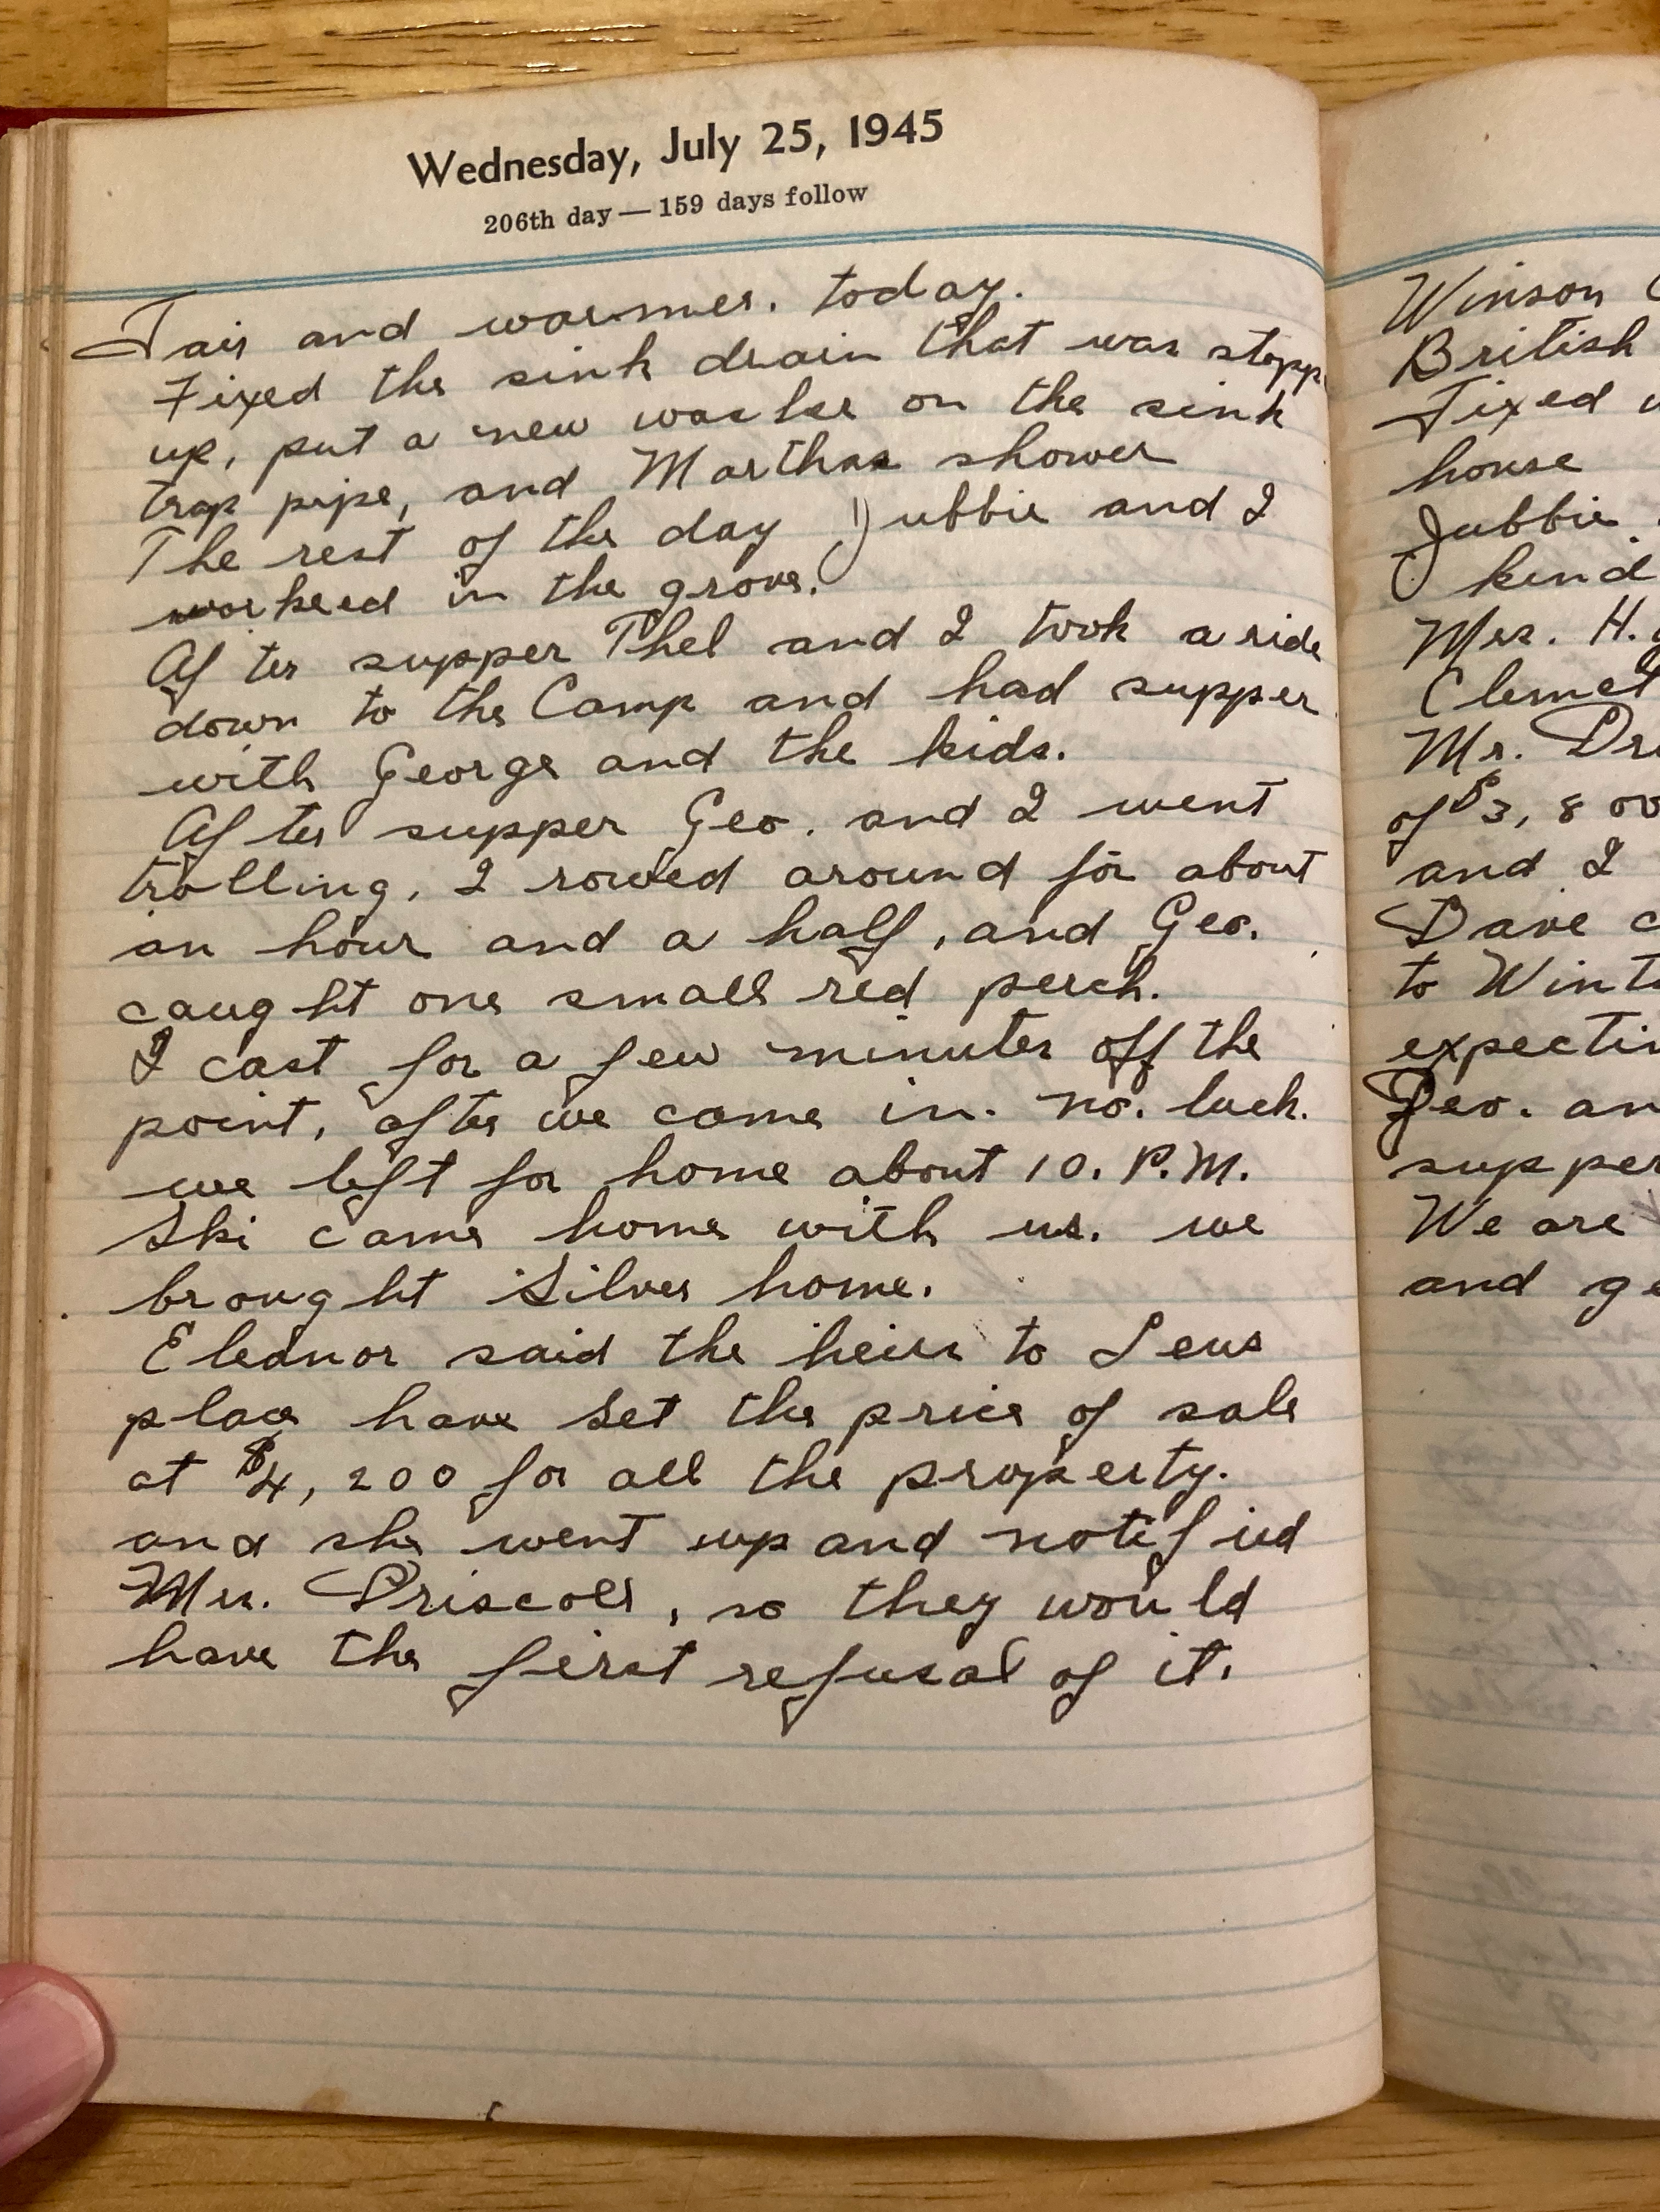 Wednesday, July 25, 1945
206th day — 159 days follow
Fair and warmer. today.
Fixed the sink drain that was stopp
up, put a new washer on the sink
trap pipe, and Marthas shower
The rest of the day Jubbie and I
workeed in the grove.
After supper Thel and I took a ride
down to the Camp and had supper
with George and the kids.
After supper Geo. and I went
trolling, I rowed around for about
an hour and a half, and Geo.
caught one small red perch.
I cast for a few minutes off the
point, after we came in. no. luck.
we left for home about 10. P.M.
Ski came home with us. we
brought Silver home.
Eleanor said the heirs to Lens
place have set the price of sale
at $4,200 for all the property.
and she went up and notified
Mrs. Driscoll, so they would
have the first refusal of it.
Winson
British
Fixed
house
Jubbie
kend
Mrs. H.
Clemet
Mr. Dri
of $3,800
and I
Dave c
to Wint
expectin
Geo. an
supper
We are
and ge